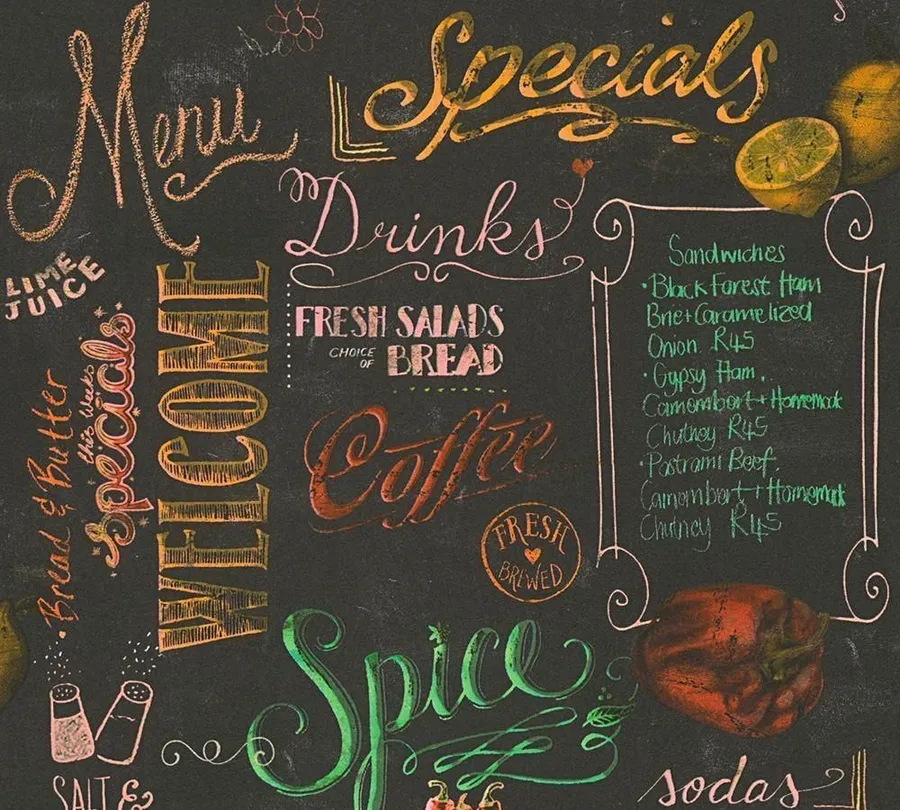 Menu
Specials
Drinks
LIME
JUICE
FRESH SALADS
CHOICE
OF
BREAD
Coffee
FRESH
BREWED
WELCOME
this weeks
Specials
Bread & Butter
Sandwiches
·Black Forest Ham
Brie+Caramelized
Onion R45
·Gypsy Ham,
Camombort+Homemak
Chutney R45
·Pastrami Beef,
Camombort+Homemak
Chutney R45
Spice
SALT &
sodas